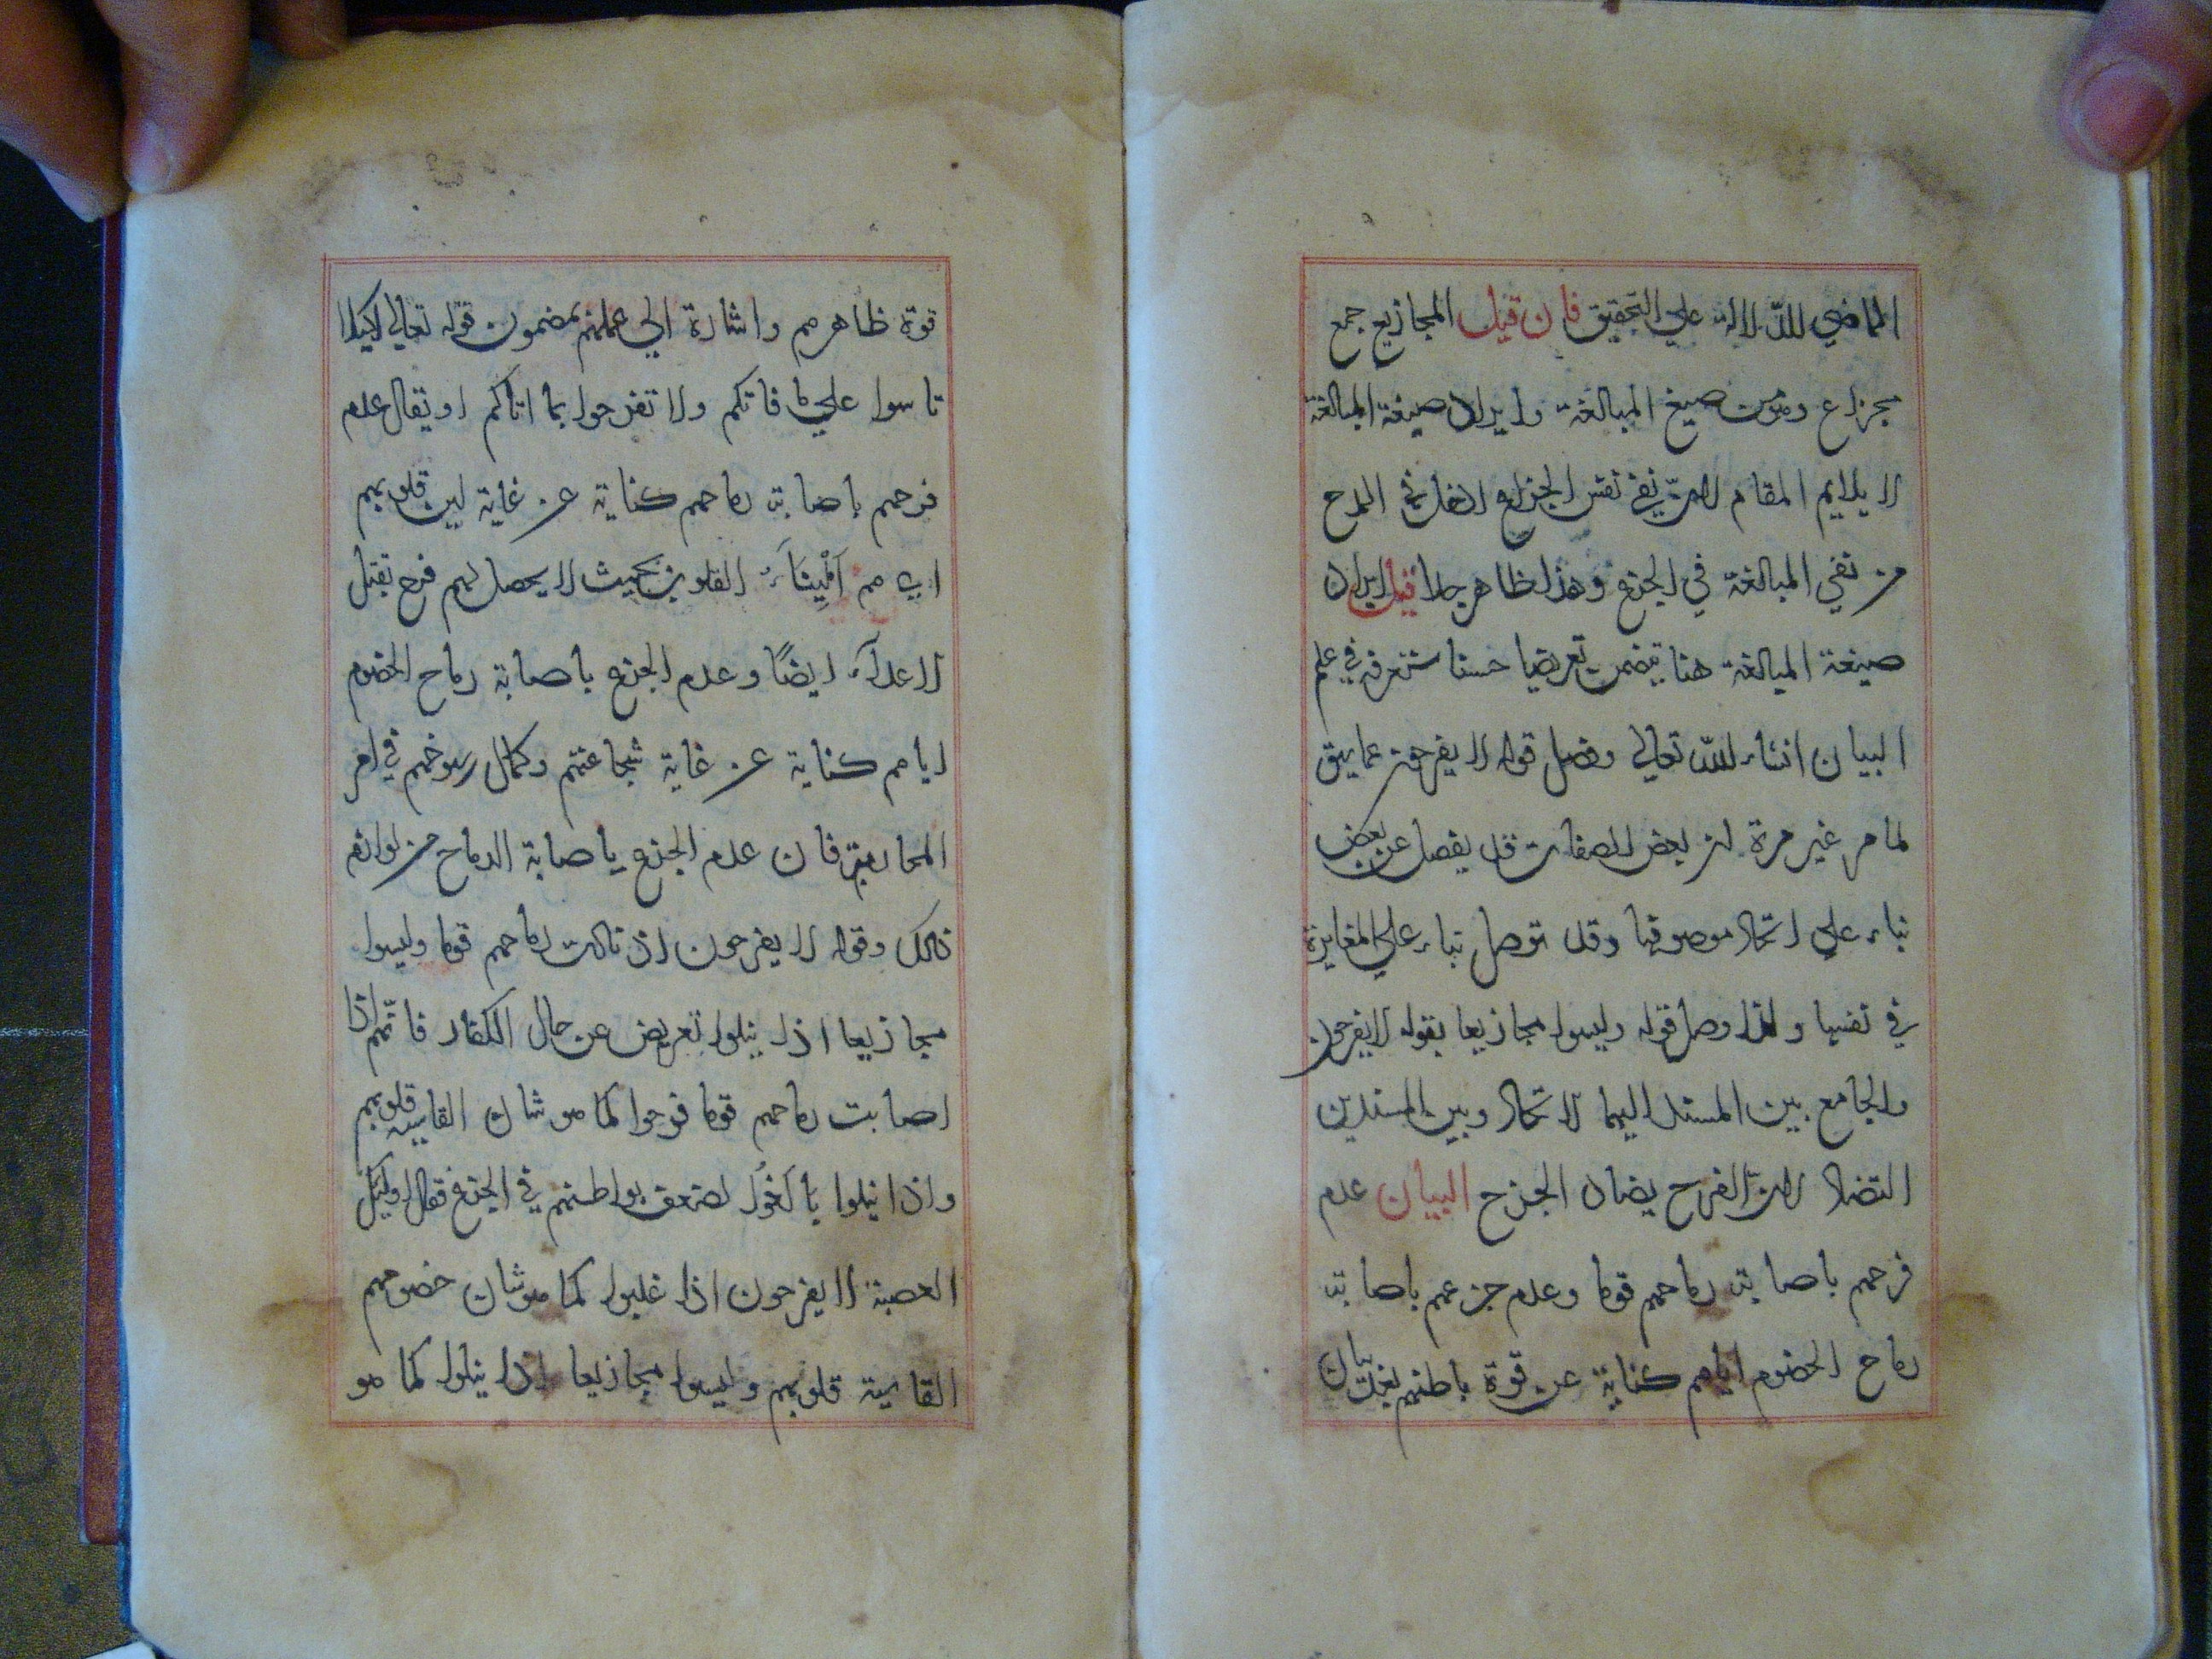 الماضي للدلالة علي التحقيق فان قيل المجازيع جمع
مجزاع وهو من صيغ المبالغة وايراد صيغة المبالغة
لا يلايم المقام لان نفي نفس الجزع ادخل في المدح
من نفي المبالغة في الجزع وهذا ظاهر جدا قيل ايراد
صيغة المبالغة هنا يتضمن تعريضا حسنا ستعرفه في علم
البيان انشاء الله تعالي وفصل قوله لا يفرحون عما سبق
لما مر غير مرة ان بعض الصفات قد يفصل عن بعض
بناء علي اتحاد موصوفها وقد توصل بناء علي المغايرة
في نفسها ولذا وصل قوله وليسوا مجازيعا بقوله لا يفرحون
والجامع بين المسند اليهما الاتحاد وبين المسندين
التضاد لان الفرح يضاد الجزع البيان عدم
فرحهم باصابة رماحهم قوما وعدم جزعهم باصابة
رماح الخصوم اياهم كناية عن قوة باطنهم
قوة ظاهرهم واشارة الي عملهم بمضمون قوله تعالي لكيلا
تاسوا علي ما فاتكم ولا تفرحوا بما اتاكم او يقال عدم
فرحهم باصابة رماحهم كناية عن غاية لين قلوبهم
اي هم القلوب بحيث لا يحصل لهم فرح بقتل
الاعداء ايضا وعدم الجزع باصابة رماح الخصوم
اياهم كناية عن غاية شجاعتهم وكمال رسوخهم في امر
المحاربة فان عدم الجزع باصابة الرماح من لوازم
ذلك وقوله لا يفرحون اذ نالت رماحهم قوما وليسوا
مجازيعا اذا نيلوا تعريض عن حال الكفار فانهم اذا
اصابت رماحهم قوما فرحوا كما هو شان القاسية قلوبهم
واذا نيلوا بالغوا لضعف بواطنهم في الجزع فقال اوليك
العصبة لا يفرحون اذا غلبوا كما هو شان خصومهم
القاسية قلوبهم وليسوا مجازيعا اذا نيلوا كما هو